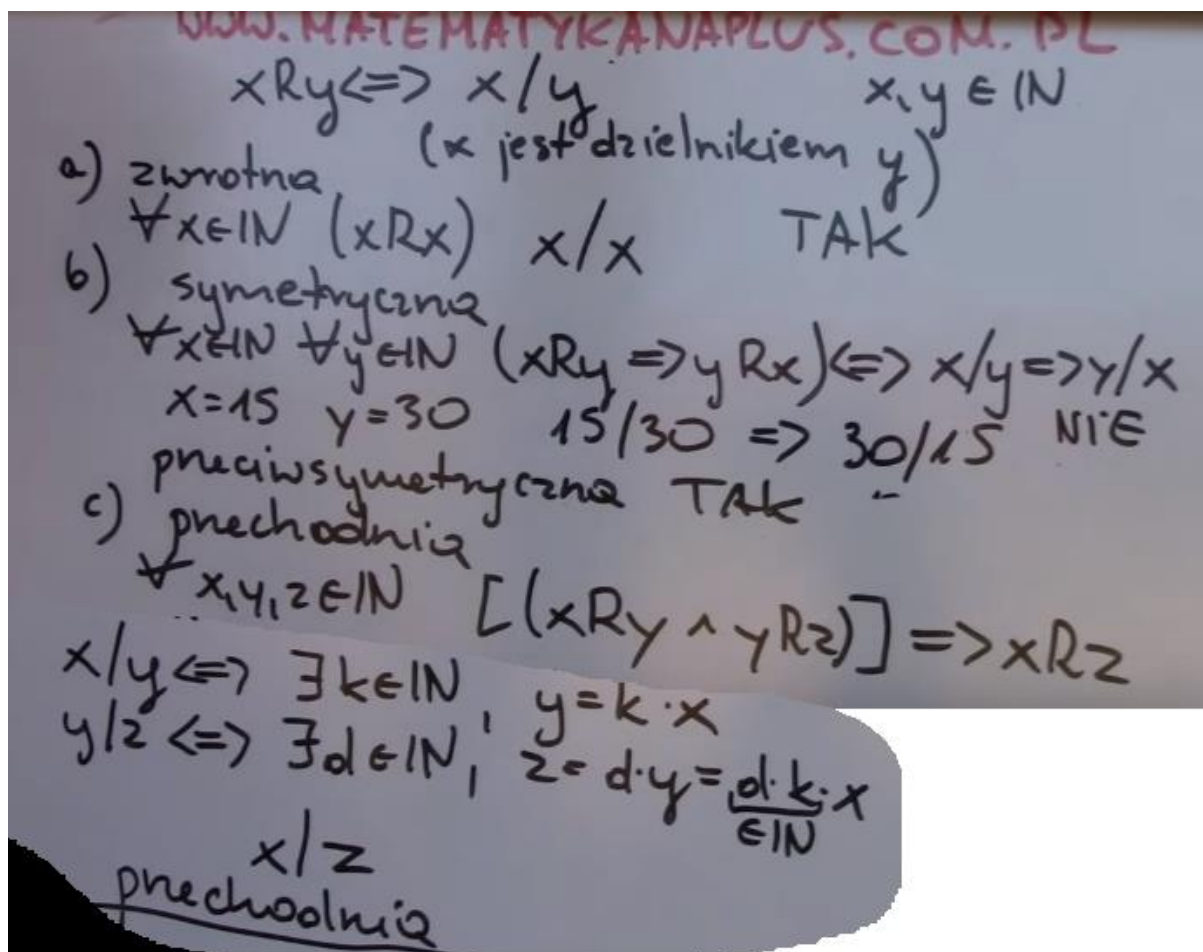 WWW.MATEMATYKANAPLUS.COM.PL
xRy<=> x/y x,y ∈ IN
(x jest dzielnikiem y)
a) zwrotna
∀x∈IN (xRx) x/x TAK
b) symetryczna
∀x∈IN ∀y∈IN (xRy => y Rx)<=> x/y=>y/x
x=15 y=30 15/30 => 30/15 NIE
przeciwsymetryczna TAK
c) przechodnia
∀ x,y,z∈IN [(xRy ^ yRz)] => xRz
x/y <=> ∃k∈IN, y=k·x
y/z <=> ∃d∈IN, z=d·y=d·k·x
∈IN
x/z
przechodnia